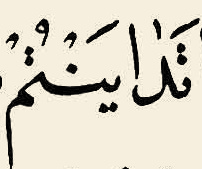 تَدٰايَنْتُمْ